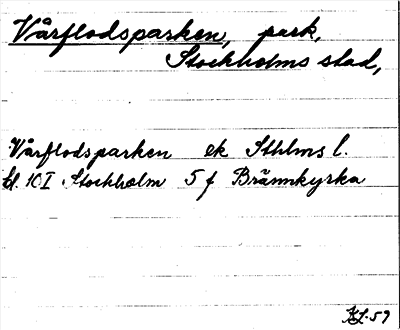 Vårflodsparken, park,
Stockholms stad,
Vårflodsparken ek Sthlms l.
bl. 10I Stockholm 5 f Brännkyrka
59